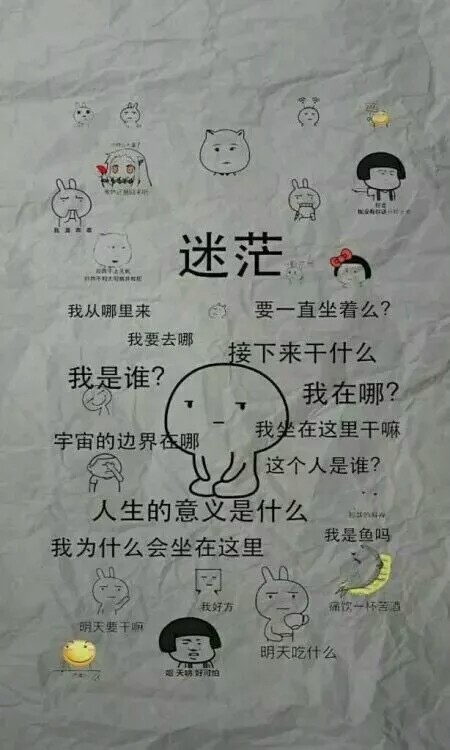 迷茫
我从哪里来
要一直坐着么?
我要去哪
接下来干什么
我是谁?
我在哪?
宇宙的边界在哪
我坐在这里干嘛
这个人是谁?
人生的意义是什么
我是鱼吗
我为什么会坐在这里
我好方
痛饮一杯苦酒
明天要干嘛
明天吃什么